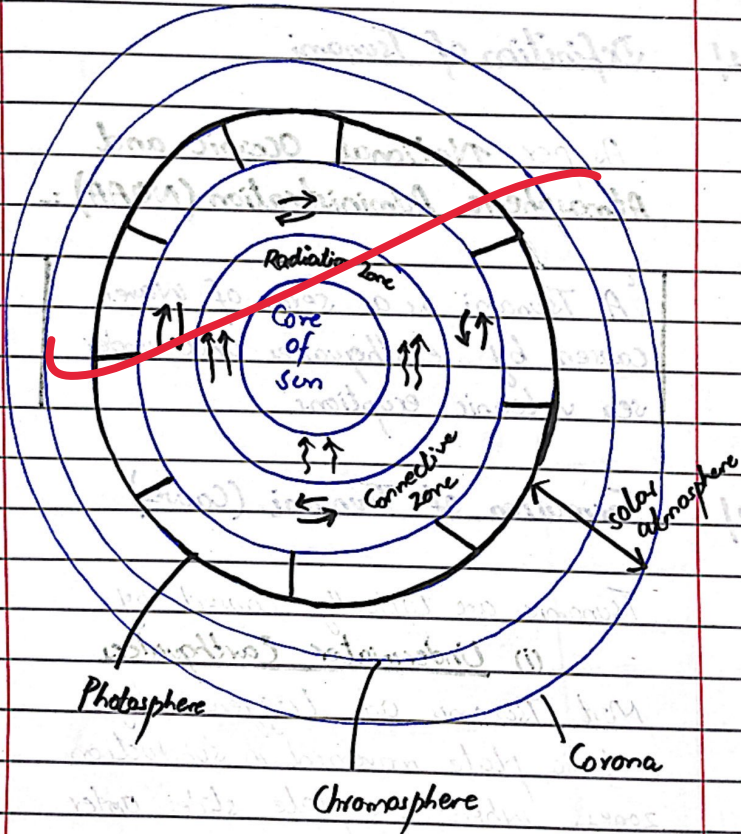 Radiation Zone
Core
of
sun
Connective
zone
solar
atmosphere
Photosphere
Corona
Chromosphere